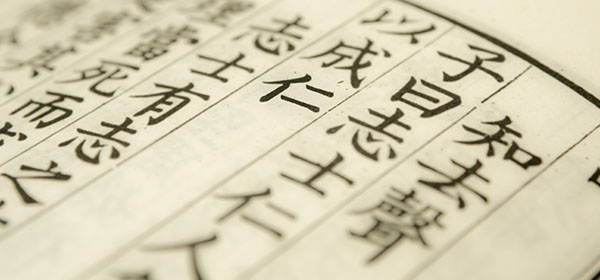 知去聲
子曰志士仁人
以成仁
志士有志之
理當死而